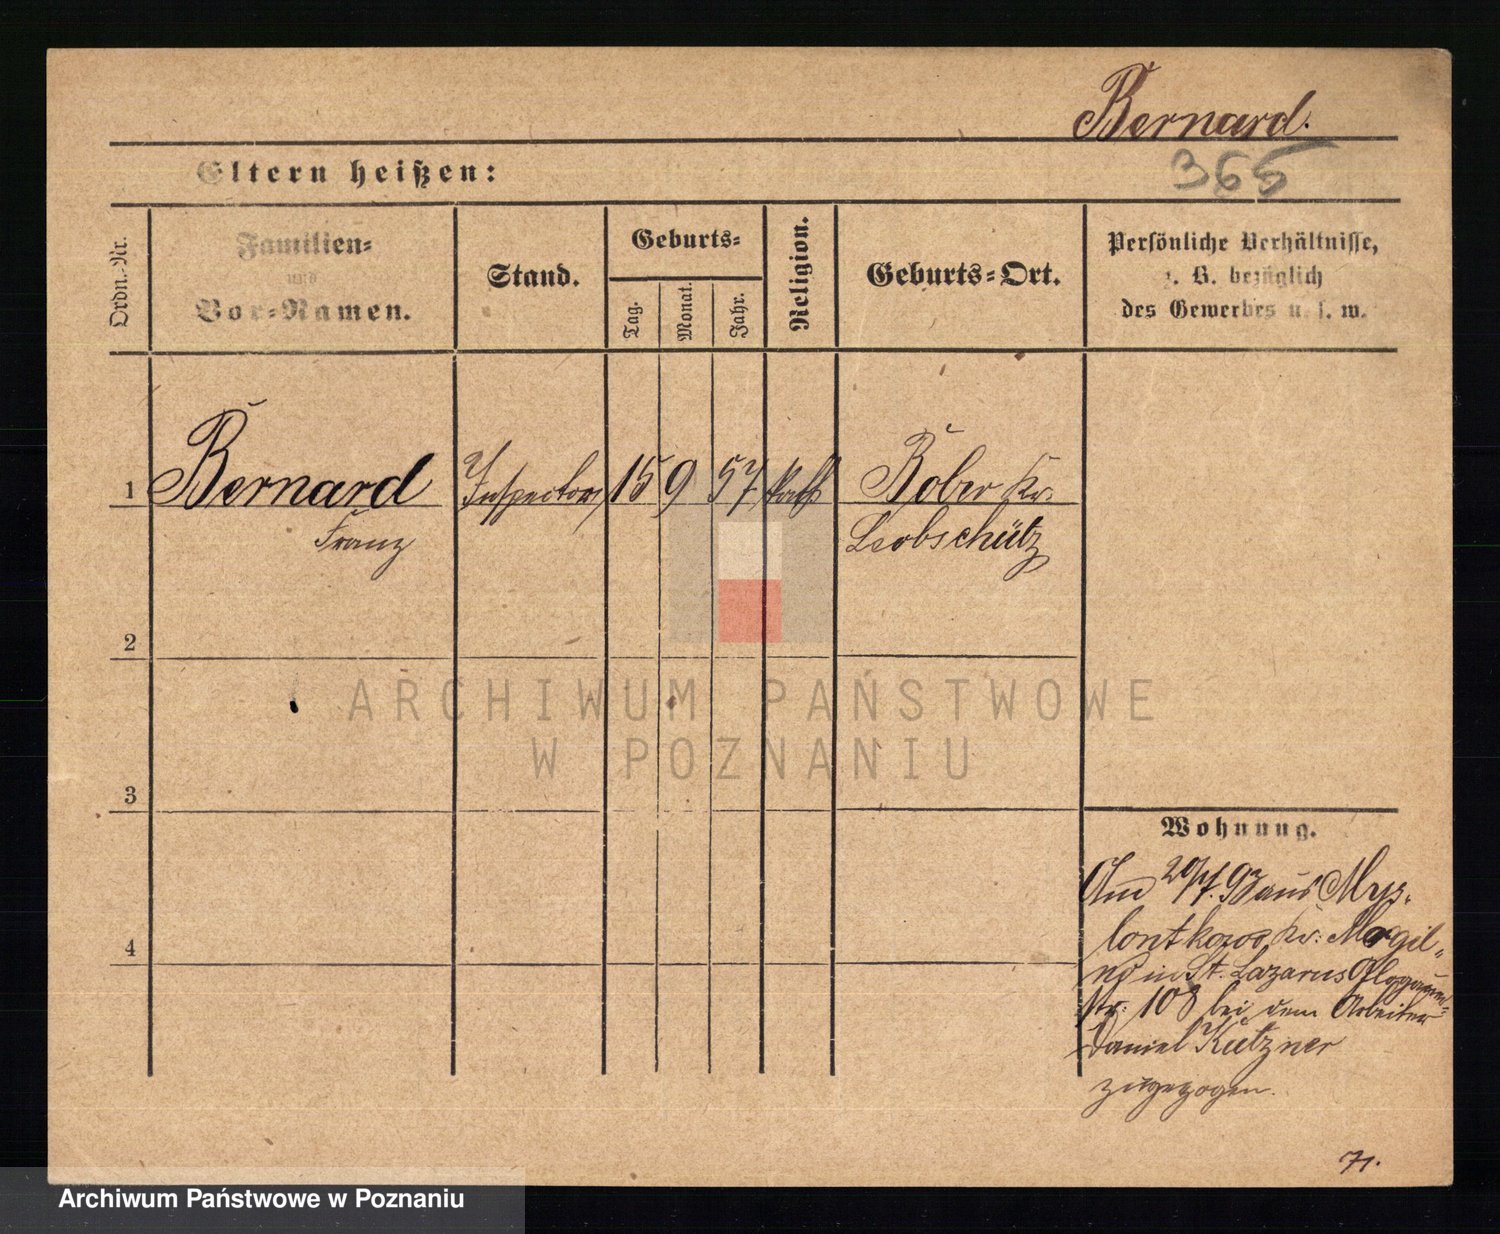 Bernard.
365
Eltern heißen:
Ordn.-Nr.
Familien-
und
Vor-Namen.
Stand.
Geburts-
Tag.
Monat.
Jahr.
Religion.
Geburts-Ort.
Persönliche Verhältnisse,
z. B. bezüglich
des Gewerbes u. s. w.
1 Bernard Inspector 15 9 57 kath Kr.
Franz Leobschütz
2
ARCHIWUM PAŃSTWOWE
W POZNANIU
3
Wohnung.
Am 93 aus
4
Kr: Mogil-
no in St. Lazarus Glogauer-
Str. 108 bei dem Arbeiter
Daniel Kützner
zugezogen.
71.
Archiwum Państwowe w Poznaniu